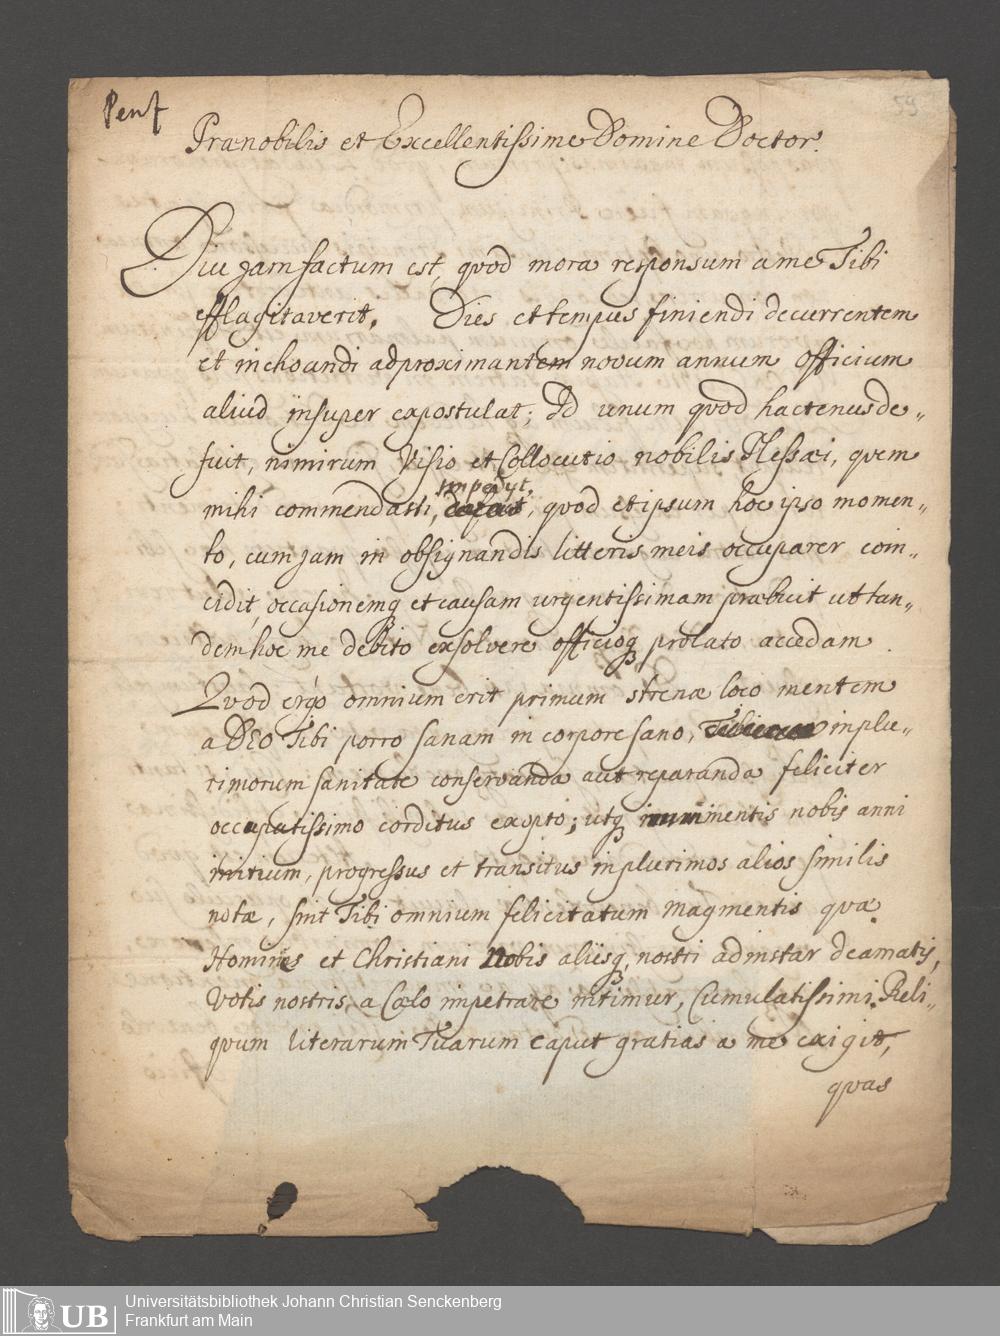 Penf
59
Prænobilis et Excellentissime Domine Doctor.
Diu jam factum est, quod mora responsum a me Tibi
efflagitaverit. Dies et tempus finiendi decurrentem
et inchoandi adproximantem novum annum officium
aliud insuper expostulat; Id unum quod hactenus de„
fuit, nimirum Visio et Collocutio nobilis Hessæi, quem
impedijt,
mihi commendasti, quod et ipsum hoc ipso momen„
to, cum jam in obsignandis litteris meis occuparer coin„
cidit, occasionemq et causam urgentissimam præbuit ut tan„
dem hoc me debito exsolvere officioq prolato accedam.
Quod ergo omnium erit primum strenæ loco mentem
a DEO Tibi porro sanam in corpore sano, in plu„
rimorum sanitate conservanda aut reparanda feliciter
occupatissimo corditus exopto; utq imminentis nobis anni
initium, progressus et transitus in plurimos alios similis
notæ, sint Tibi omnium felicitatum magmentis quæ
Homines et Christiani Nobis aliisq, nostri ad instar deamatis,
Votis nostris, a Cœlo impetrare nitimur, Cumulatissimi. Reli„
quum literarum Tuarum caput gratias a me exigit,
quas
UB
Universitätsbibliothek Johann Christian Senckenberg
Frankfurt am Main